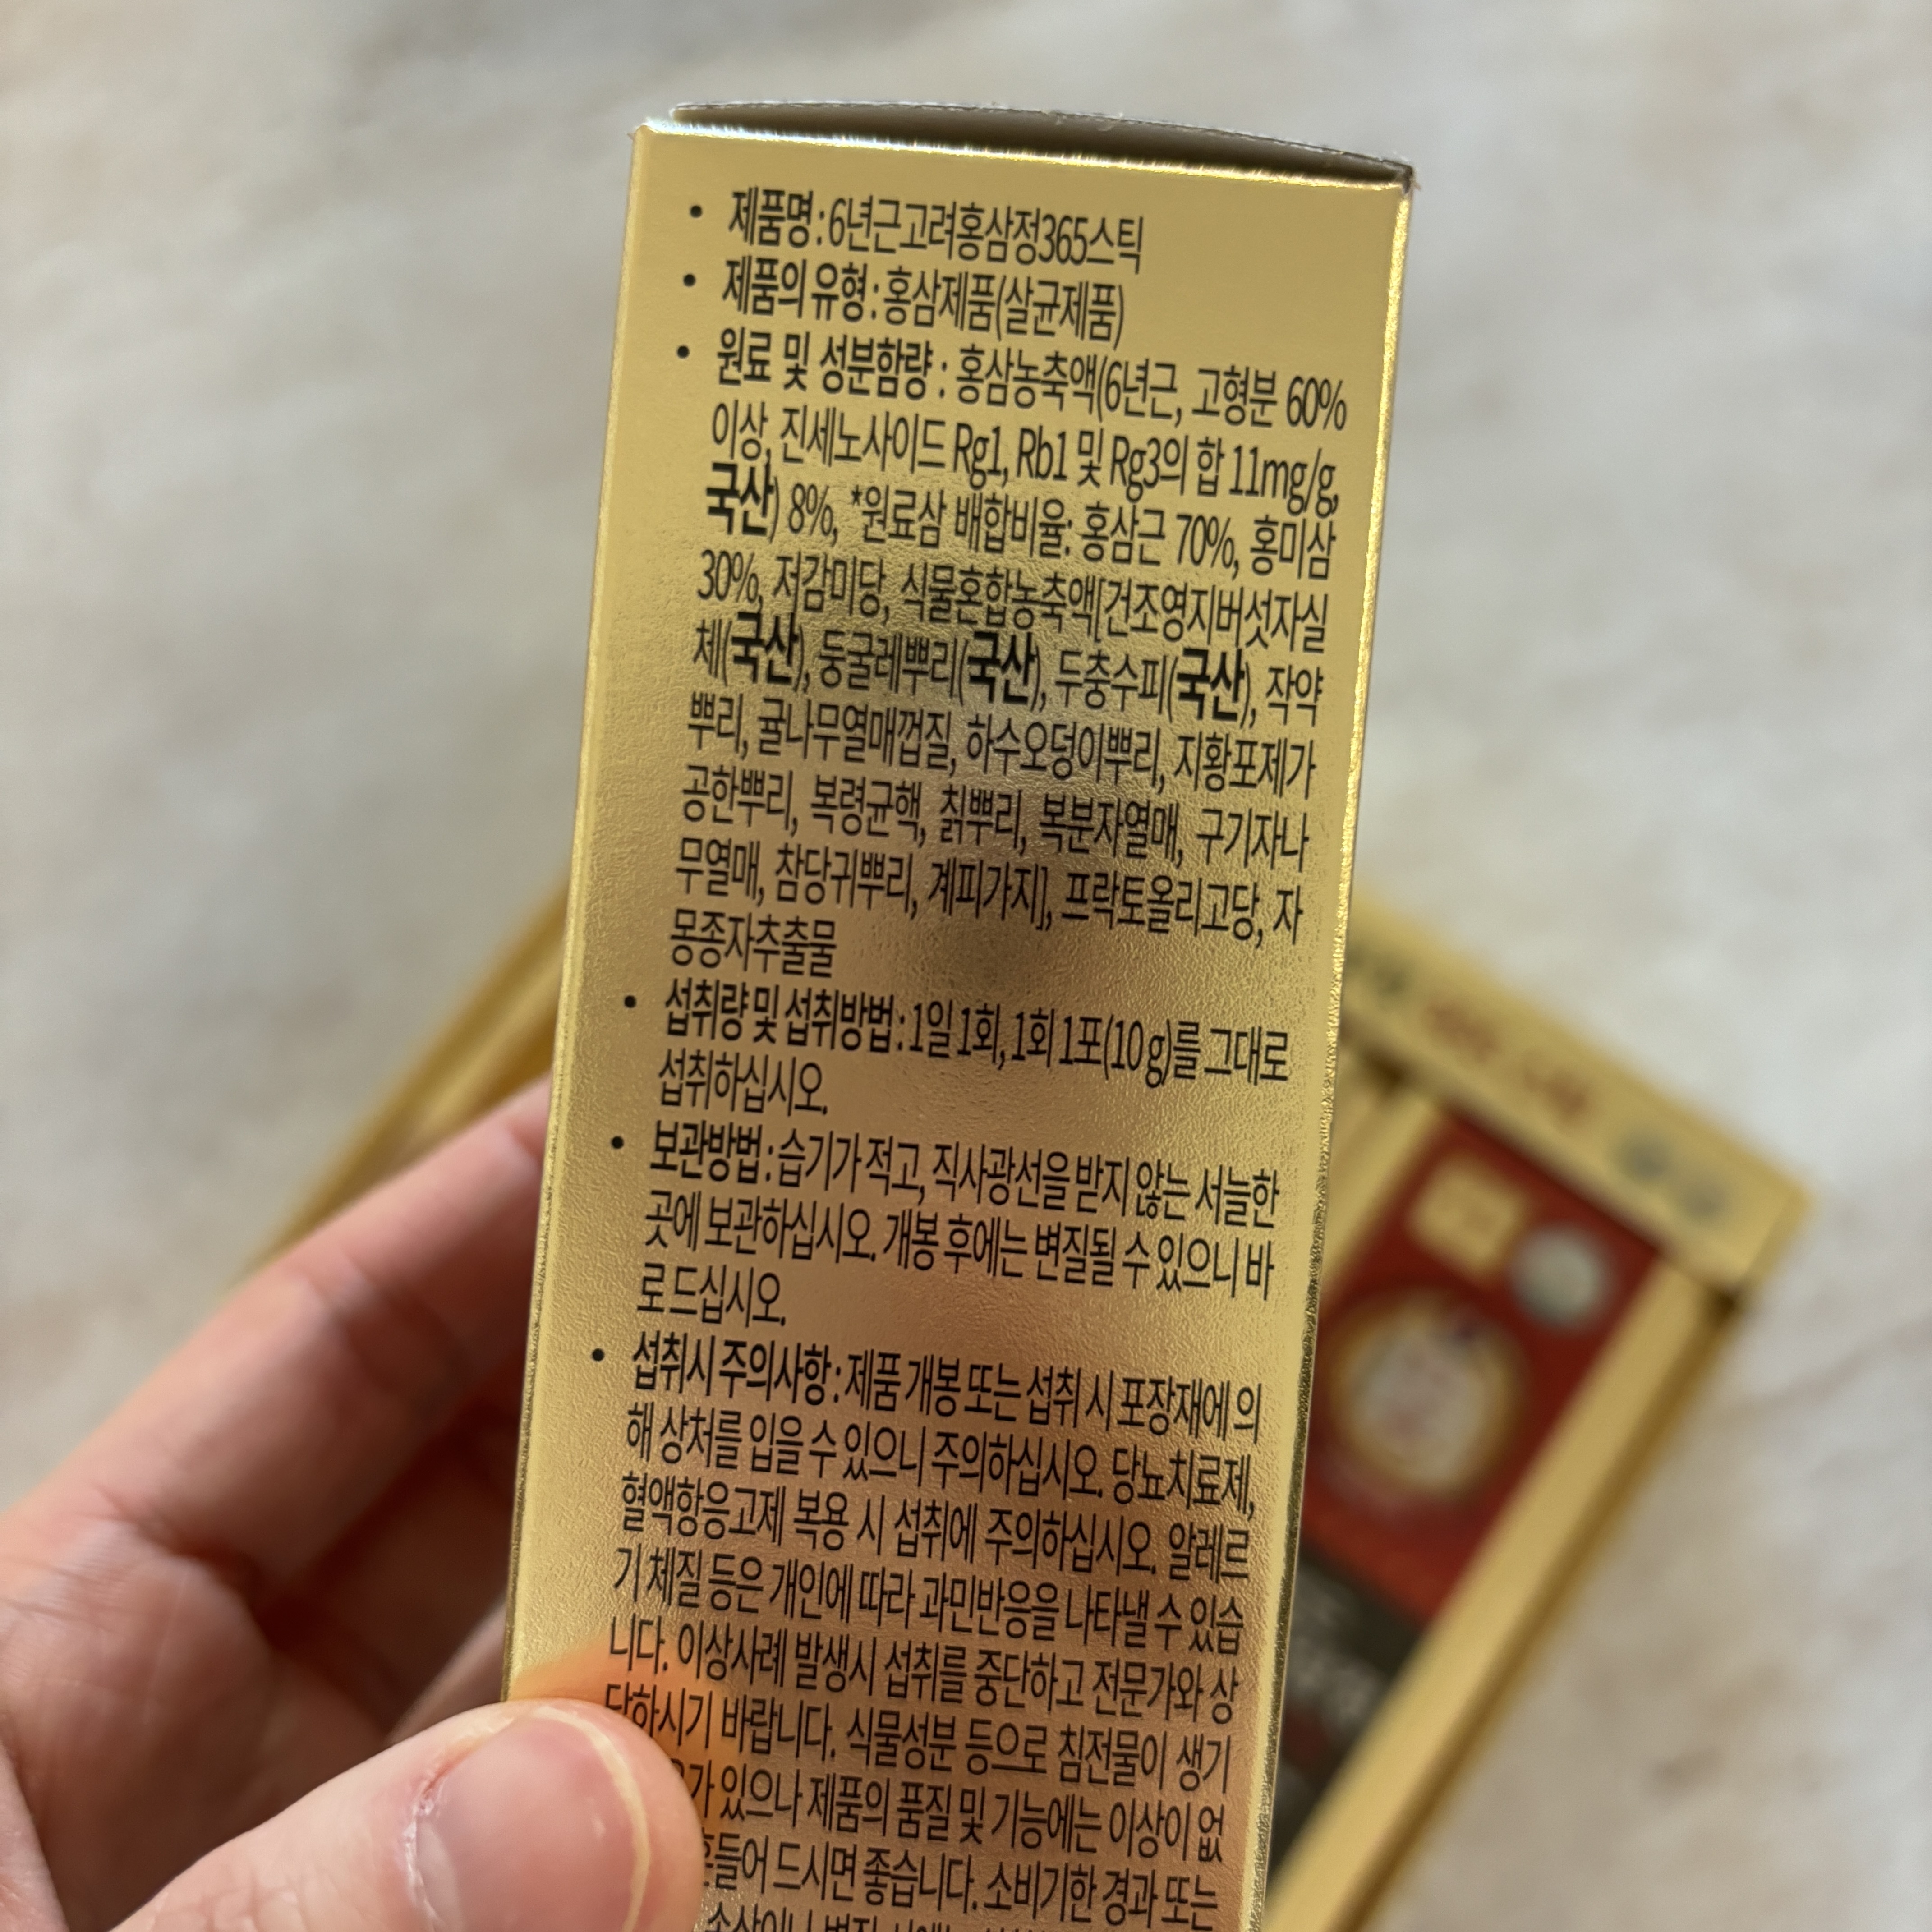 • 제품명 : 6년근고려홍삼정365스틱
• 제품의 유형 : 홍삼제품(살균제품)
• 원료 및 성분함량 : 홍삼농축액(6년근, 고형분 60%
이상, 진세노사이드 Rg1, Rb1 및 Rg3의 합 11mg/g,
국산) 8%, *원료삼 배합비율: 홍삼근 70%, 홍미삼
30%, 저감미당, 식물혼합농축액[건조영지버섯자실
체(국산), 둥굴레뿌리(국산), 두충수피(국산), 작약
뿌리, 귤나무열매껍질, 하수오덩이뿌리, 지황포제가
공한뿌리, 복령균핵, 칡뿌리, 복분자열매, 구기자나
무열매, 참당귀뿌리, 계피가지], 프락토올리고당, 자
몽종자추출물
• 섭취량 및 섭취방법 : 1일 1회, 1회 1포(10g)를 그대로
섭취하십시오.
• 보관방법 : 습기가 적고, 직사광선을 받지 않는 서늘한
곳에 보관하십시오. 개봉 후에는 변질될 수 있으니 바
로 드십시오.
• 섭취시 주의사항 : 제품 개봉 또는 섭취 시 포장재에 의
해 상처를 입을 수 있으니 주의하십시오. 당뇨치료제,
혈액항응고제 복용 시 섭취에 주의하십시오. 알레르
기 체질 등은 개인에 따라 과민반응을 나타낼 수 있습
니다. 이상사례 발생시 섭취를 중단하고 전문가와 상
담하시기 바랍니다. 식물성분 등으로 침전물이 생기
있으나 제품의 품질 및 기능에는 이상이 없
흔들어 드시면 좋습니다. 소비기한 경과 또는